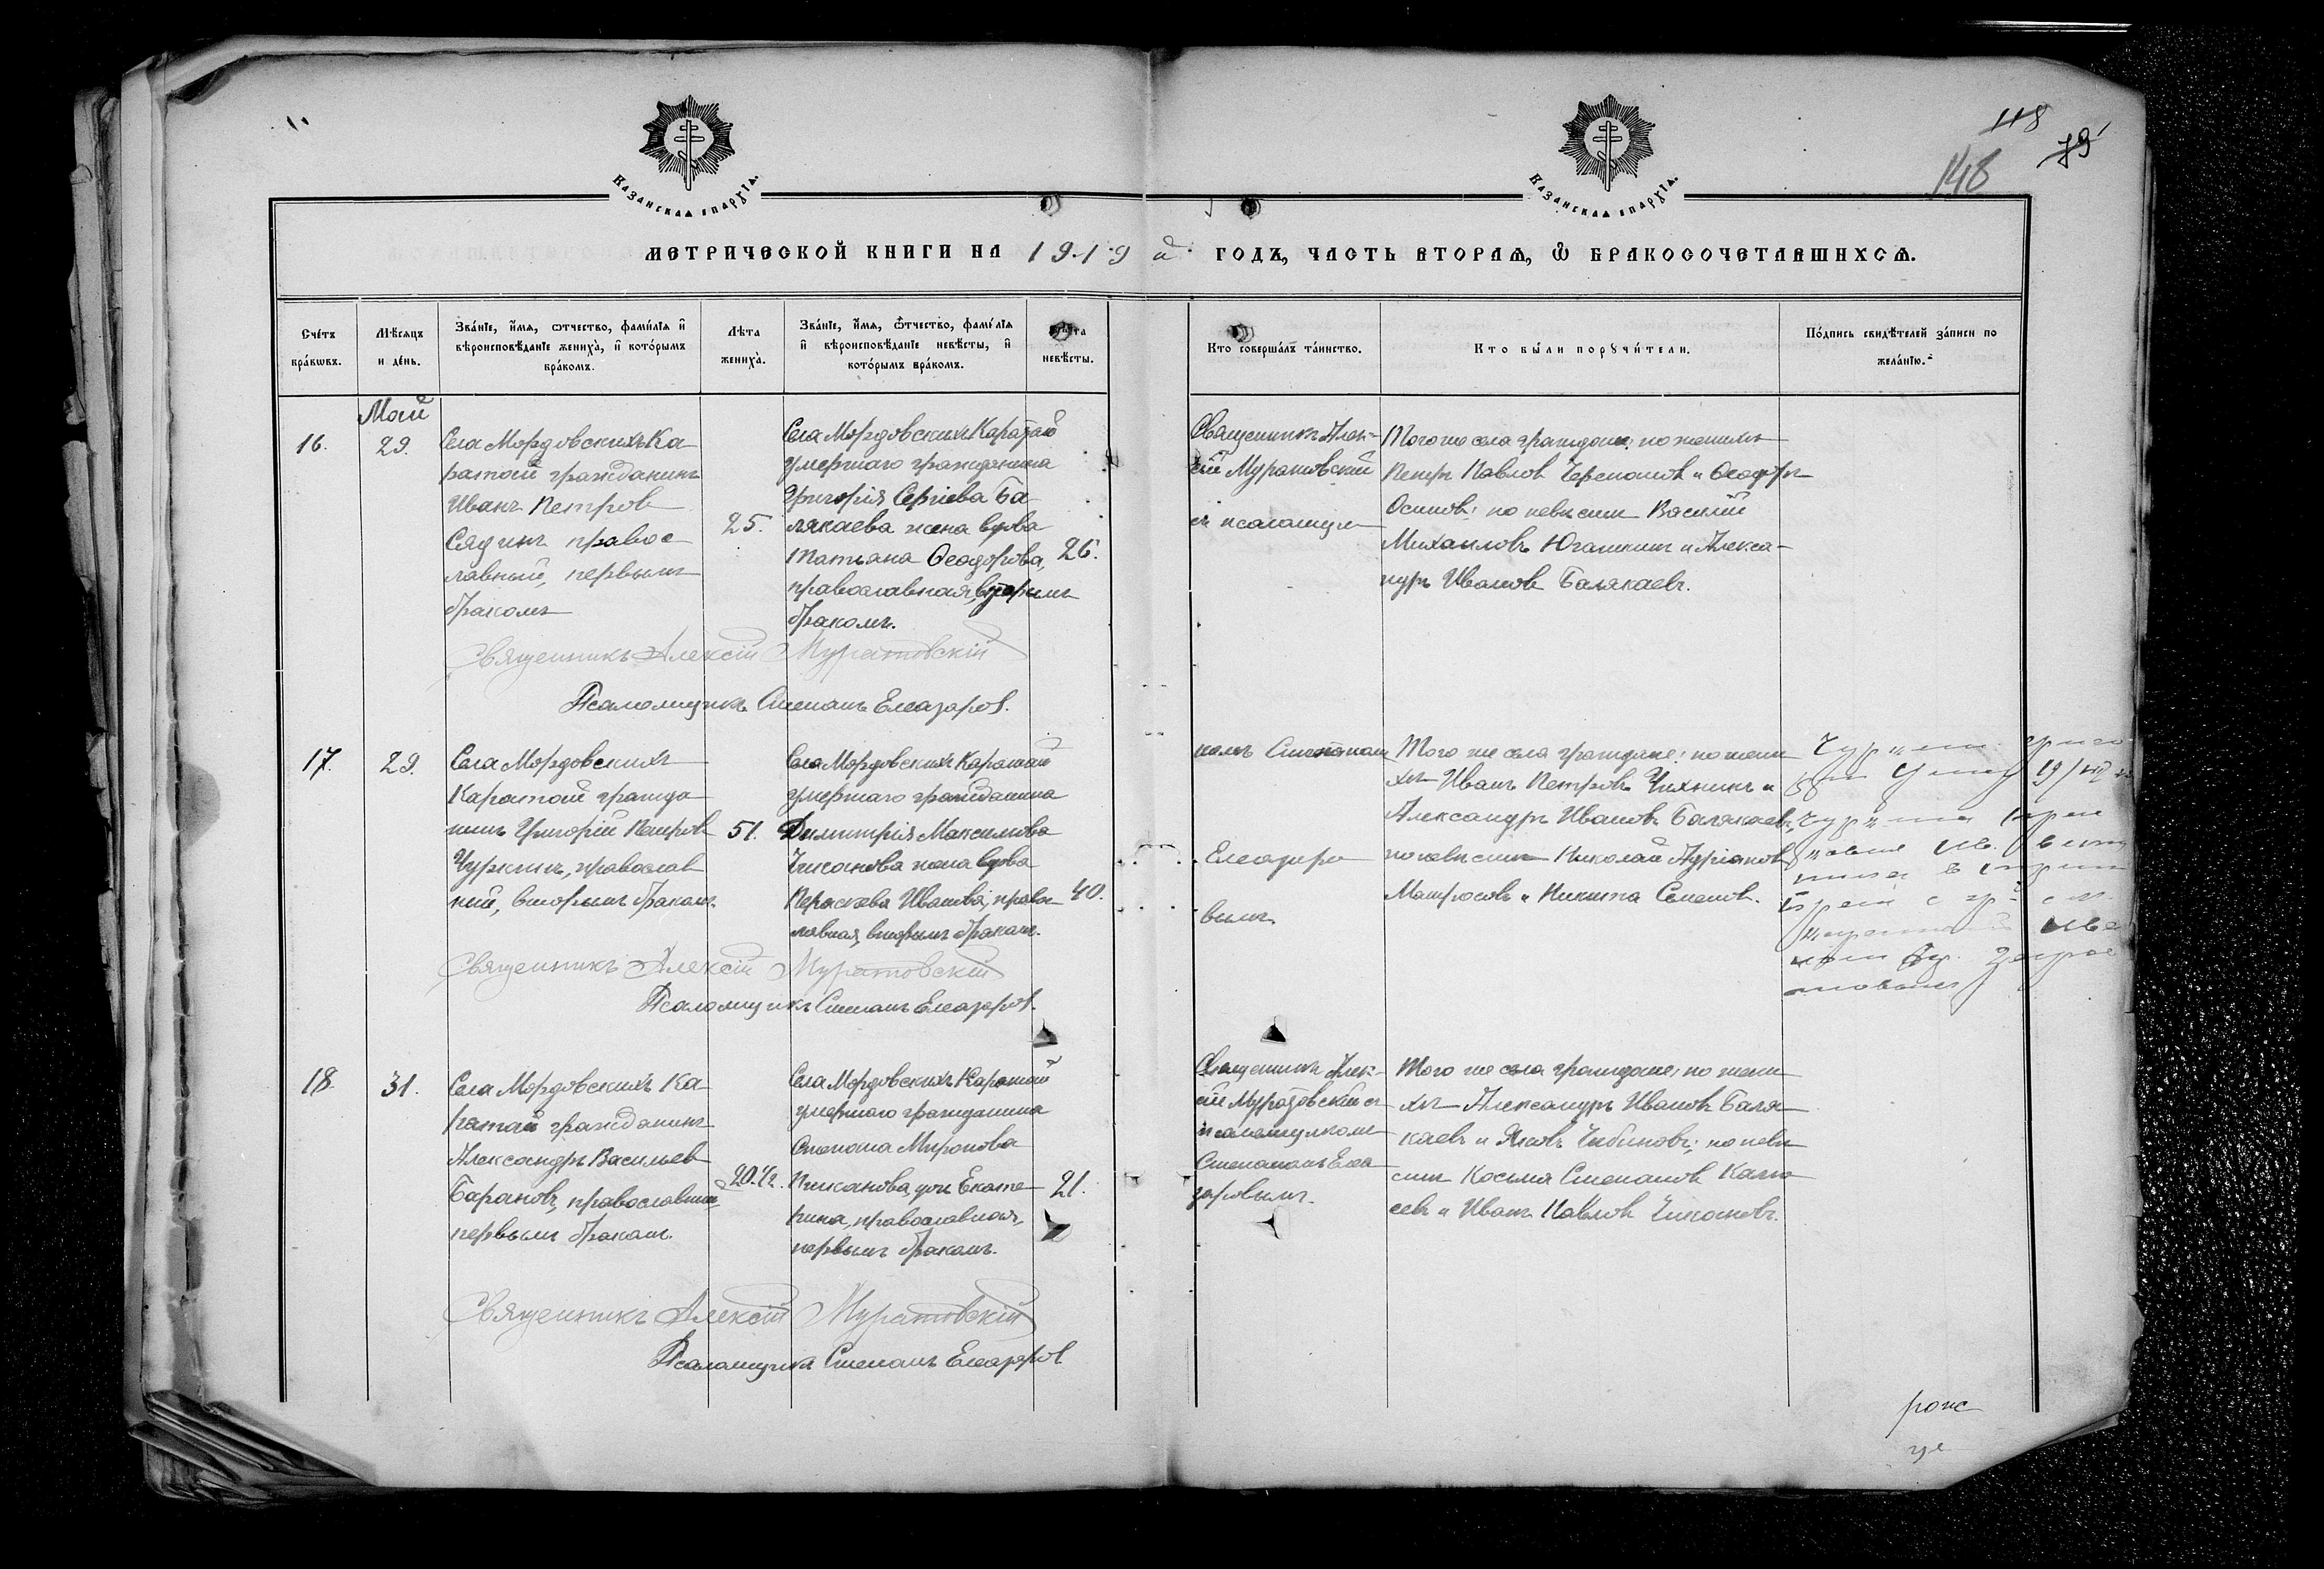 118
79
148
Казанская епархїа.
Казанская епархїа.
метрической книги на 1919 й годъ, часть вторая, ѡ бракосочетавшихся.
Счетъ браковъ.
Мѣсяцъ и день.
Званїе, имя, отчество, фамилїя и вѣроисповѣданїе жениха, и которымъ бракомъ.
Лѣта жениха.
Званїе, имя, отчество, фамилїя и вѣроисповѣданїе невѣсты, и которымъ бракомъ.
невѣсты.
Кто совершалъ таинство.
Кто были поручители.
Подпись свидѣтелей записи по желанїю.
Май
16.
29.
Села Мордовскихъ Ка
ратай гражданинъ
Иванъ Петров
Сядинъ правос
лавный, первымъ
бракомъ
25.
Села Мордовскихъ Каратай
умершаго гражданина
Григорія Сергіева Ба
лякаева жена вдова
Татьяна Ѳеодорова,
православная, вторымъ
бракомъ.
26.
Священникъ Алек-
сій Муратовскій
съ псаломщи
Того же села граждане: по женихѣ
Петръ Павлов и Ѳеодоръ
Осипов; по невѣстѣ Василій
Михаиловъ Югашкинъ и Алекса-
ндръ Иванов Балякаевъ.
Священникъ Алексій Муратовскій
Псаломщикъ Степанъ Елеазаров.
17.
29.
Села Мордовскихъ
Каратай гражда
нинъ Григорій Петров
Чуркинъ, православ
ный, вторымъ бракомъ.
51.
Села Мордовскихъ Каратай
умершаго гражданина
Димитрія Максимова
Чиканова жена вдова
Параскева Иванова, право
лавная, вторымъ бракомъ.
40.
комъ Степаномъ
Елеазаро
вымъ.
Того же села граждане: по жени
хѣ Иванъ Петровъ и
Александръ Иванов Балякаевъ,
по невѣстѣ Николай Андріанов
Матросовъ и Никита Семенов.
19/
Священникъ Алексій Муратовскій
Псаломщикъ Степанъ Елеазаров.
18.
31.
Села Мордовскихъ Ка
ратай гражданинъ
Александръ Васильев
Барановъ, православный
первымъ бракомъ.
20 1/2.
Села Мордовскихъ Каратай
умершаго гражданина
Степана Миронова
дчи Екате
рина, православная,
первымъ бракомъ.
21.
Священникъ Алек-
сій Муратовскій съ
псаломщикомъ
Степаномъ Елеа
заровымъ.
Того же села граждане: по жени
хѣ Александръ Иванов Баля
каевъ и Яковъ по невѣ
стѣ Косьма Степанов
севъ и Иванъ Павлов Чикановъ.
Священникъ Алексій Муратовскій
Псаломщикъ Степанъ Елеазаров